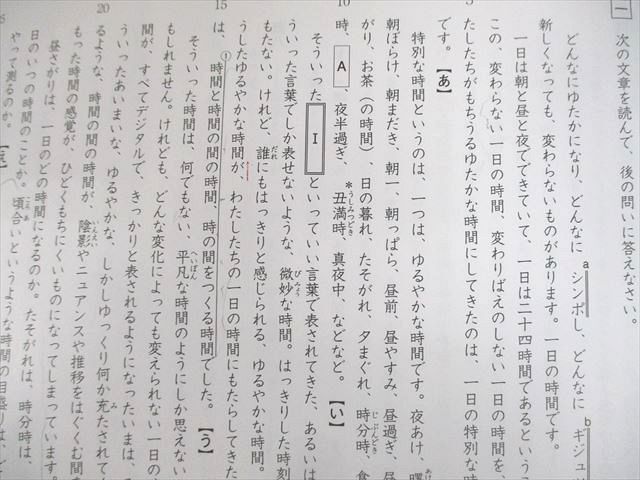 一 次の文章を読んで、後の問いに答えなさい。
どんなにゆたかになり、どんなにシンポし、どんなにギジュツ
a
b
新しくなっても、変わらないものがあります。一日の時間です。
一日は朝と昼と夜でできていて、一日は二十四時間であるというこ
この、変わらない一日の時間、変わりばえのしない一日の時間を、
5
たしたちがもちうるゆたかな時間にしてきたのは、一日の特別な時
です。【あ】
特別な時間というのは、一つは、ゆるやかな時間です。夜あけ、曙
朝ぼらけ、朝まだき、朝一、朝っぱら、昼前、昼やすみ、昼過ぎ、昼
がり、お茶(の時間)日の暮れ、たそがれ、夕まぐれ、時分時、食
10
時、A、夜半過ぎ、*丑満時、真夜中、などなど。【い】
そういったⅠといっていい言葉で表されてきた、あるいは
ういった言葉でしか表せないような、微妙な時間。はっきりした時刻
もたない。けれど、誰にもはっきりと感じられる、ゆるやかな時間。
うしたゆるやかな時間が、わたしたちの一日の時間にもたらしてきた
15
は、①時間と時間の間の時間、時の間をつくる時間でした。【う】
そういった時間は、何でもない、平凡な時間のようにしか思えない
もしれません。けれども、どんな変化によっても変えられない一日の
間が、すべてデジタルで、きっかりと表されるようになったいまは、
ういったあいまいな、ゆるやかな、しかしゆっくり何か充たされてく
20
るような、時間の間の時間が、陰影やニュアンスや推移をはぐくむ間を
もった時間の感覚が、ひどくもちにくいものになってしまっています。
昼さがりは、一日のどの時間になるのか。たそがれは、時分時は、
日のいつの時間のことか。頃合いというような時間の目盛りは、ど
やって測るのか。【え】